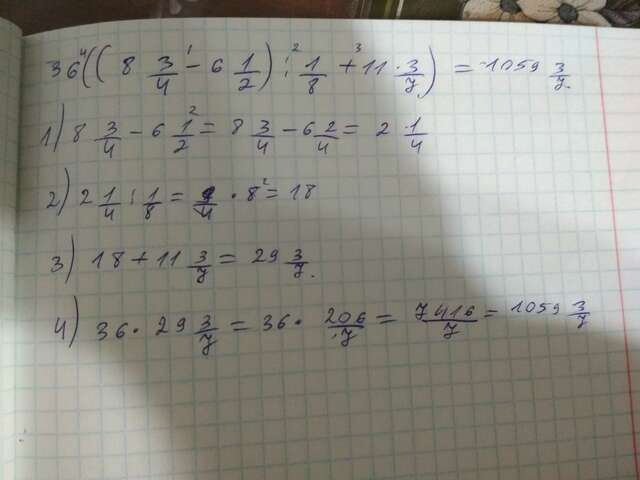 36((8 3/4 - 6 1/2) : 1/8 + 11 · 3/7) = 1059 3/7.
1) 8 3/4 - 6 1/2 = 8 3/4 - 6 2/4 = 2 1/4
2) 2 1/4 : 1/8 = 9/4 · 8 = 18
3) 18 + 11 3/7 = 29 3/7.
4) 36 · 29 3/7 = 36 · 206/7 = 7416/7 = 1059 3/7